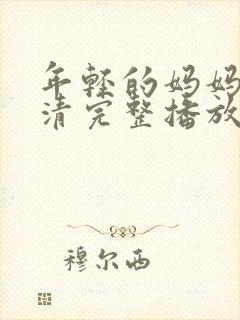 年轻的妈妈
清完整播放
穆尔西